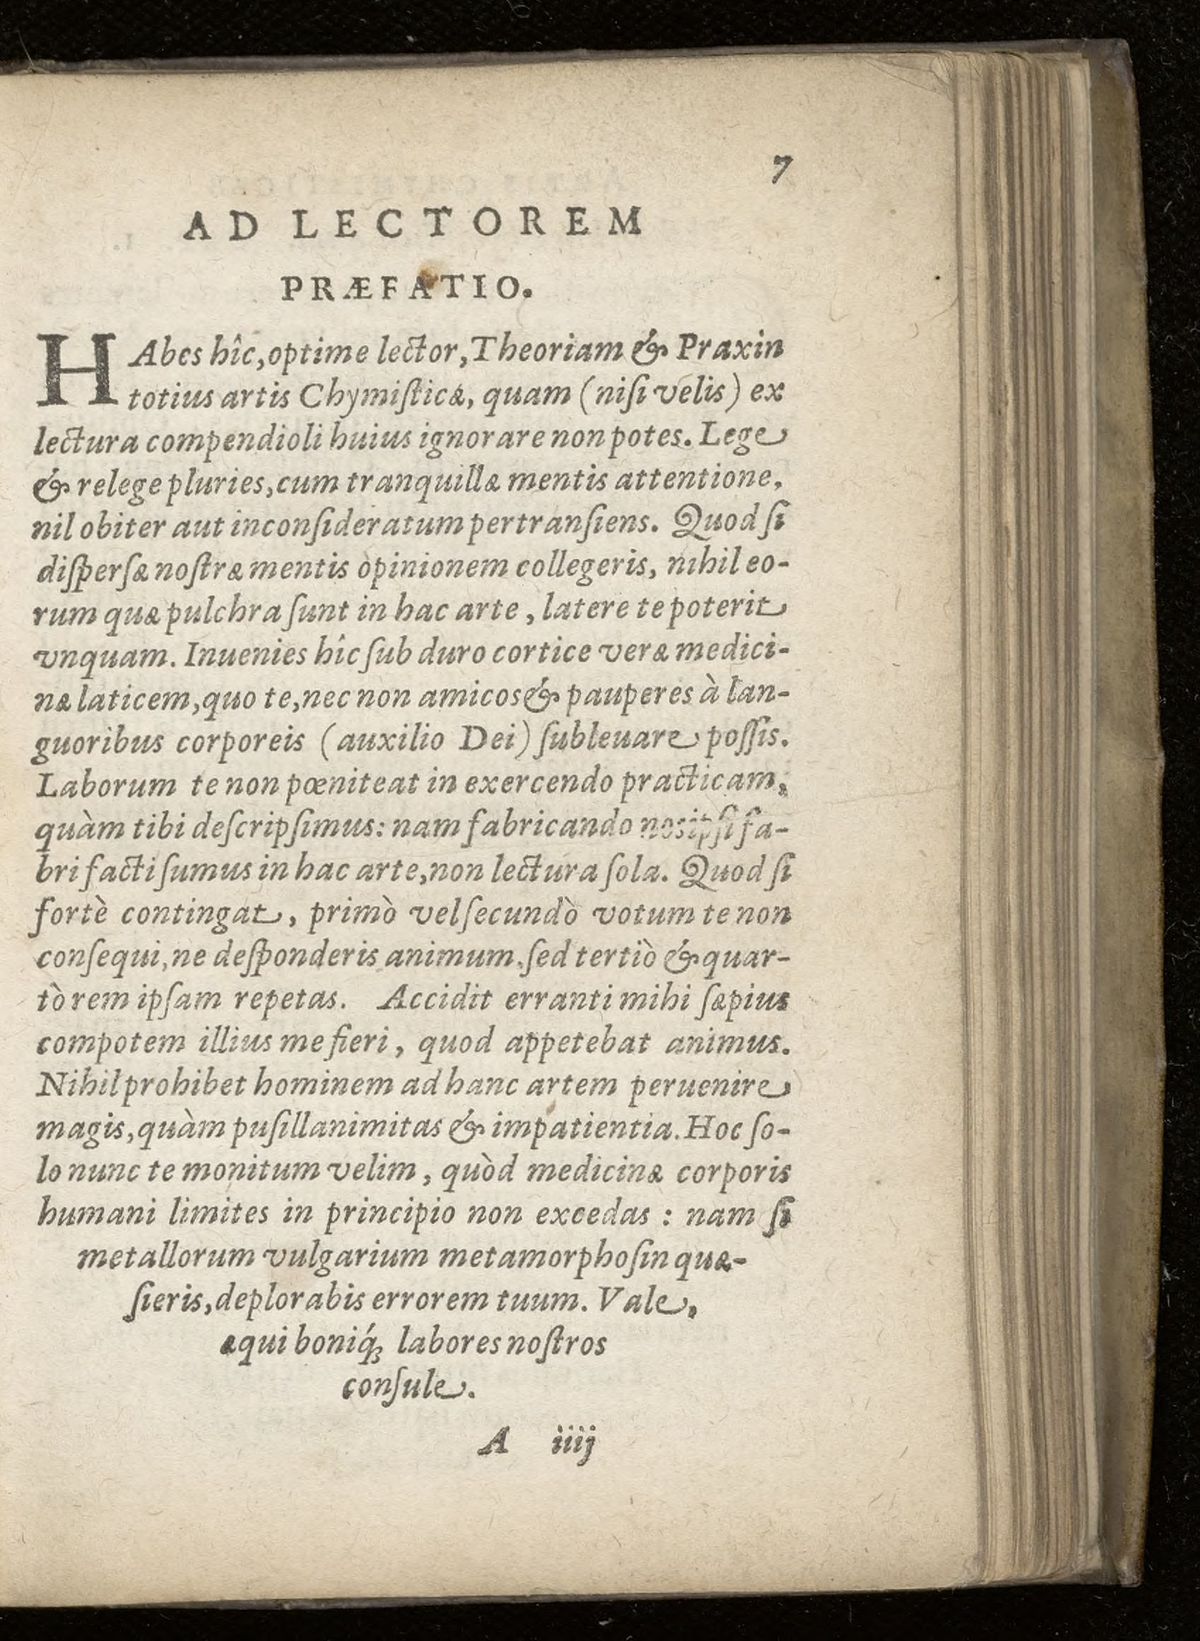 7
AD LECTOREM
PRÆFATIO.
HAbes hîc, optime lector, Theoriam & Praxin
totius artis Chymisticæ, quam (nisi velis) ex
lectura compendioli huius ignorare non potes. Lege
& relege pluries, cum tranquillæ mentis attentione,
nil obiter aut inconsideratum pertransiens. Quod si
dispersæ nostræ mentis opinionem collegeris, nihil eo-
rum quæ pulchra sunt in hac arte, latere te poterit
vnquam. Inuenies hîc sub duro cortice veræ medici-
næ laticem, quo te, nec non amicos & pauperes à lan-
guoribus corporeis (auxilio Dei) subleuare possis.
Laborum te non pœniteat in exercendo practicam,
quàm tibi descripsimus: nam fabricando nosipsi fa-
bri facti sumus in hac arte, non lectura sola. Quod si
fortè contingat, primò vel secundò votum te non
consequi, ne desponderis animum, sed tertiò & quar-
tò rem ipsam repetas. Accidit erranti mihi sæpius
compotem illius me fieri, quod appetebat animus.
Nihil prohibet hominem ad hanc artem peruenire
magis, quàm pusillanimitas & impatientia. Hoc so-
lo nunc te monitum velim, quòd medicinæ corporis
humani limites in principio non excedas: nam si
metallorum vulgarium metamorphosin quæ-
sieris, deplorabis errorem tuum. Vale,
æqui boniq́; labores nostros
consule.
A iiij